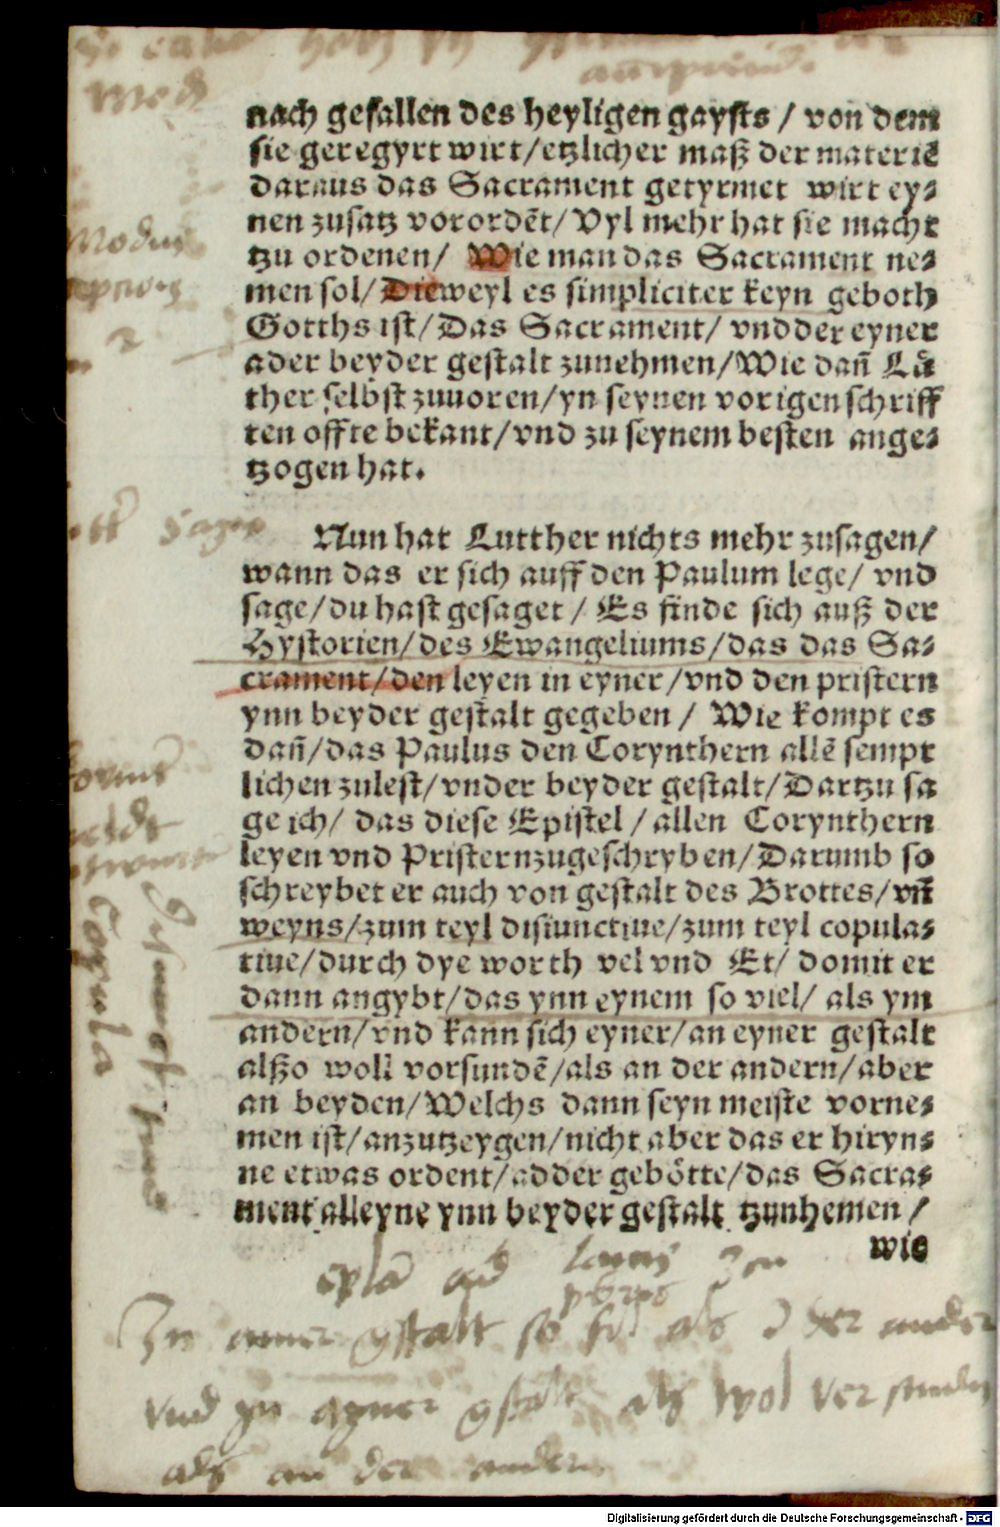 nach gefallen des heyligen gaysts / von dem
sie geregyrt wirt/etzlicher maß der materiē
daraus das Sacrament getyrmet wirt ey⸗
nen zusatz vorordēt/Vyl mehr hat sie macht
tzu ordenen/ Wie man das Sacrament ne⸗
men sol/Dieweyl es simpliciter keyn geboth
Gotths ist/Das Sacrament/ vnd der eyner
ader beyder gestalt zunehmen/Wie dañ Lu
ther selbst zuuoren/yn seynen vorigen schriff
ten offte bekant/vnd zu seynem besten ange⸗
tzogen hat.
Nun hat Lutther nichts mehr zusagen/
wann das er sich auff den Paulum lege/ vnd
sage/du hast gesaget / Es finde sich auß der
Hystorien/des Ewangeliums/das das Sa⸗
crament/den leyen in eyner/vnd den pristern
ynn beyder gestalt gegeben / Wie kompt es
dañ/das Paulus den Corynthern allē sempt
lichen zulest/vnder beyder gestalt/Dartzu sa
ge ich/ das diese Epistel / allen Corynthern
leyen vnd Pristernzugeschryben/Darumb so
schreybet er auch von gestalt des Brottes/vñ
weyns/zum teyl disiunctiue/zum teyl copula⸗
tiue/durch dye worth vel vnd Et/ domit er
dann angybt/das ynn eynem so viel/ als ym
andern/vnd kann sich eyner/an eyner gestalt
alßo woll vorsundē/als an der andern/aber
an beyden/Welchs dann seyn meiste vorne⸗
men ist/anzutzeygen/nicht aber das er hiryn⸗
ne etwas ordent/adder gebötte/das Sacra⸗
ment alleyne ynn beyder gestalt tzunhemen /
wie
Modus
Copula
gstalt so als der ander
vnd yn ayner gstalt als wol ver
als an der andern
Digitalisierung gefördert durch die Deutsche Forschungsgemeinschaft - DFG